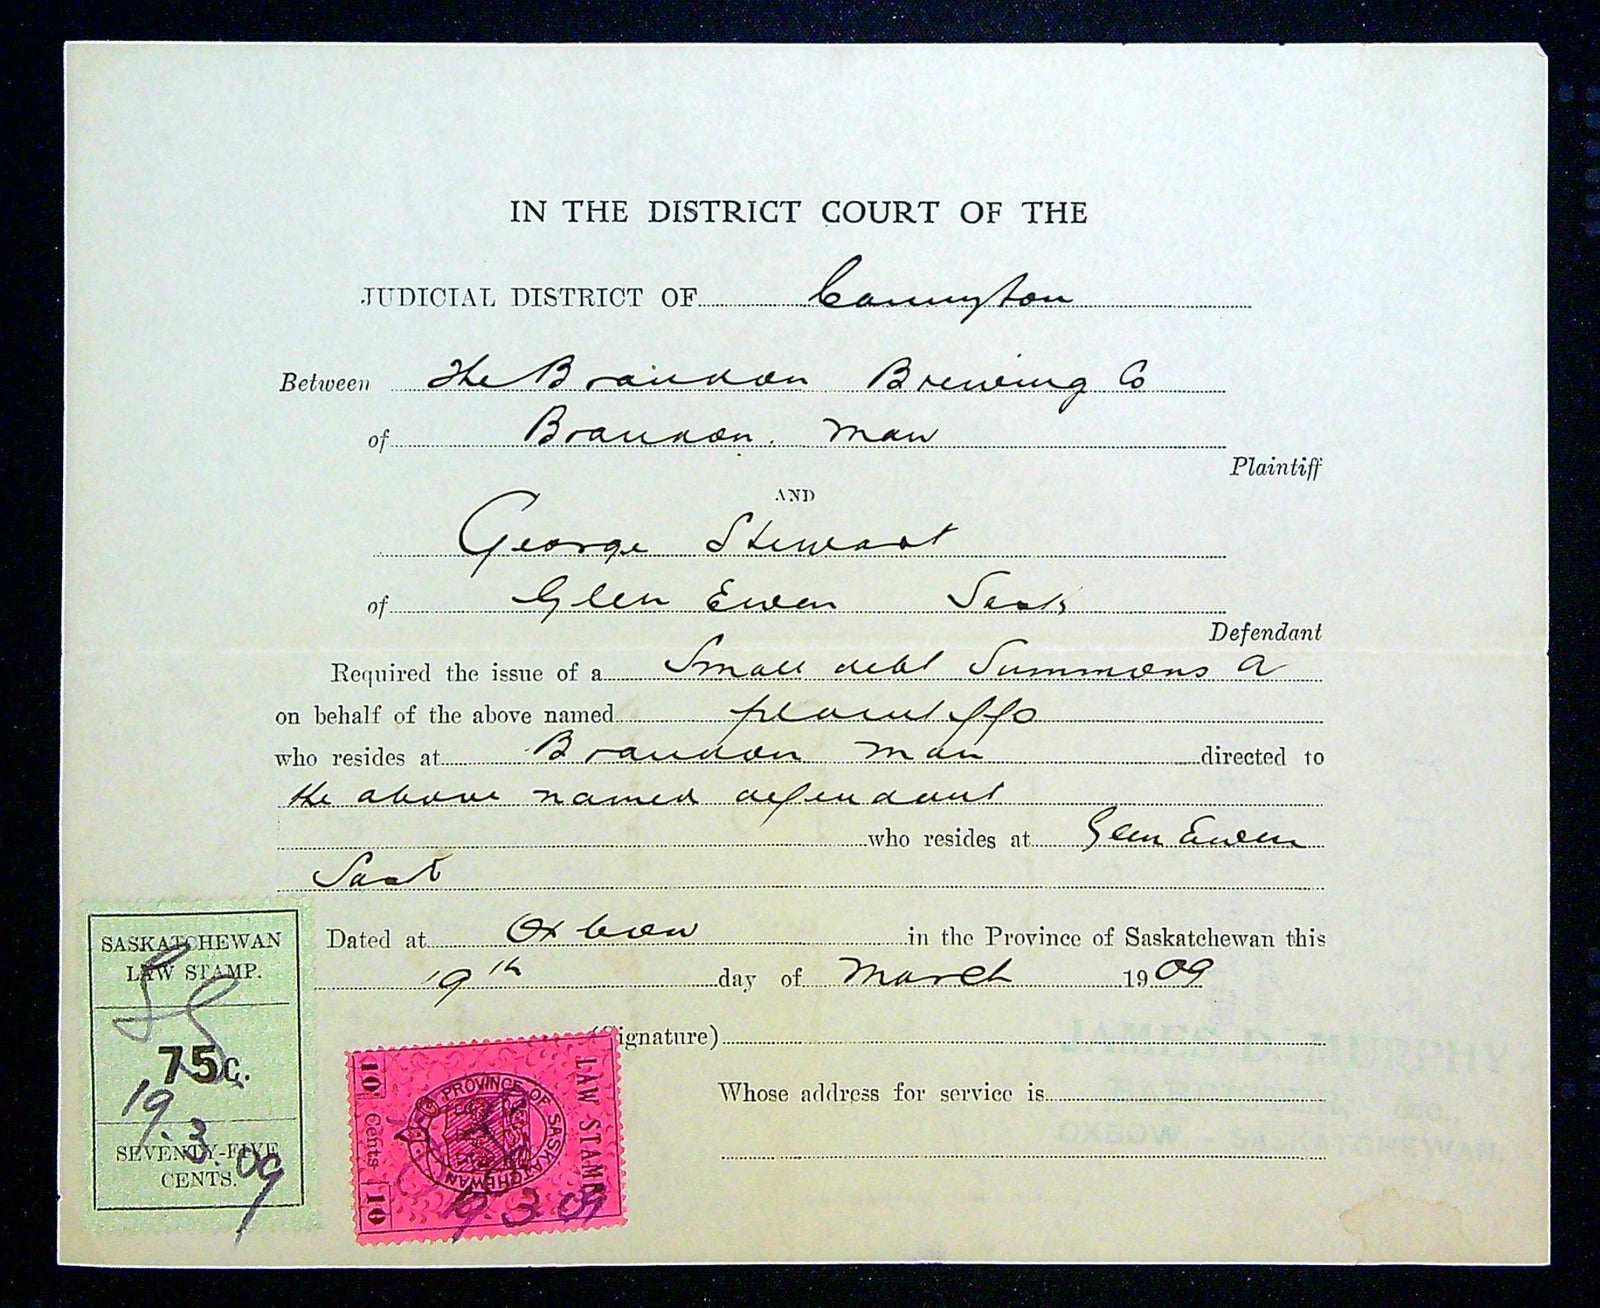 IN THE DISTRICT COURT OF THE
JUDICIAL DISTRICT OF Cannyton
Between The Brandon Brewing Co
of Brandon. Man
Plaintiff
AND
George Stewart
of Glen Ewen Sask
Defendant
Required the issue of a Small debt Summons a
on behalf of the above named plaintiffs
who resides at Brandon Man directed to
the above named defendant
who resides at Glen Ewen
Sask
Dated at Oxbow in the Province of Saskatchewan this
19th day of March 1909
(Signature)
Whose address for service is
SASKATCHEWAN
LAW STAMP.
75c.
19.3.09
SEVENTY-FIVE
CENTS.
LAW STAMP
PROVINCE OF SASKATCHEWAN
10 Cents 10
19 3 09
JAMES D. MURPHY
BARRISTER, &c.,
OXBOW, - SASKATCHEWAN.